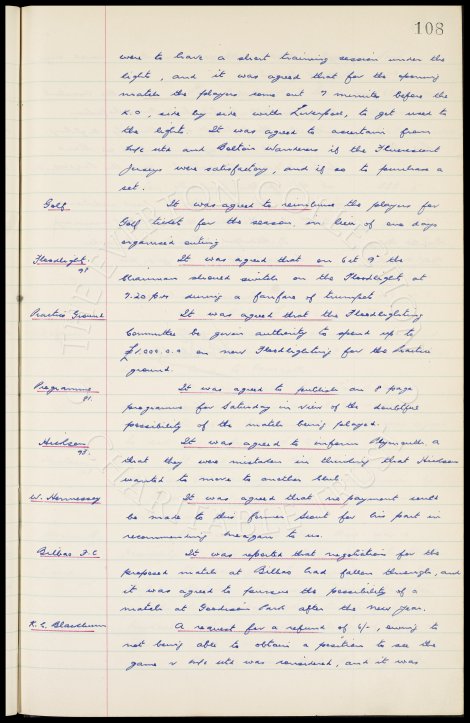 108
were to have a short training session under the
lights, and it was agreed that for the opening
match the players come out 7 minutes before the
K.O, side by side with Liverpool, to get used to
the lights. It was agreed to ascertain from
M/c utd and Bolton Wanderers if the Fluorescent
Jerseys were satisfactory, and if so to purchase a
set.
Golf. It was agreed to reimburse the players for
Golf ticket for the season, in lieu of one days
organised outing
Floodlight. It was agreed that on Oct 9th the
Chairman should switch on the Floodlight at
7.20 p.m during a fanfare of trumpets
Practice Ground It was agreed that the Floodlighting
Committee be given authority to spend up to
£1,000.0.0 on new Floodlighting for the Practice
ground.
Programme It was agreed to publish an 8 page
91.
programme for Saturday in view of the doubtful
possibility of the match being played.
Hickson It was agreed to inform Plymouth. A
98.
that they were mistaken in thinking that Hickson
wanted to move to another club.
W. Hennessey It was agreed that no payment could
be made to this former Scout for his part in
recommending Meagan to us.
Bilbao F.C It was reported that negotiation for the
proposed match at Bilbao had fallen through, and
it was agreed to pursue the possibility of a
match at Goodison Park after the new year.
K. G. Blackburn A request for a refund of 6/-, owing to
not being able to obtain a position to see the
game v M/c utd was considered, and it was
THE EVERTON COLLECTION
CHARITABLE TRUST